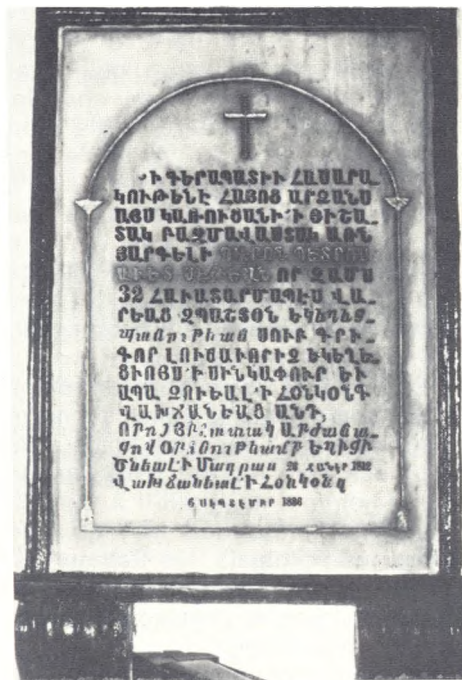 Ի ԳԵՐԱՊԱՏԻՒ ՀԱՍԱՐԱ_
ԿՈՒԹԵՆԷ ՀԱՅՈՑ ԱՐՁԱՆՍ
ԱՅՍ ԿԱՌՈՒՑԱՆԻ Ի ՅԻՇԱ_
ՏԱԿ ԲԱԶՄԱՎԱՍՏԱԿ ԱՌՆ
ՅԱՐԳԵԼԻ ՊԵՏՐՈՍ
ՍԵԹԵԱՆ ՈՐ ԶԱՄՍ
32 ՀԱՒԱՏԱՐՄԱՊԷՍ ՎԱ_
ՐԵԱՑ ԶՊԱՇՏՕՆ ԵԿԵՂԵՑ_
Պանութեան ՍՈՒԲ ԳՐԻ_
ԳՈՐ ԼՈՒՍԱՒՈՐԻՉ ԵԿԵՂԵ_
ՑՒՈՅՍ Ի ՍԻՆԿԱՓՈՒՐ ԵՒ
ԱՊԱ ՉՈՒԵԱԼ Ի ՀՕՆԿՕՆԳ
ՎԱԽՃԱՆԵԱՑ ԱՆԴ,
ՈՐՈՅ ՅԻշատակ ԱՐժանա_
Գով ՕՐՀնութեամբ ԵՂԻՑԻ
Ծնեալ Ի Մադրաս 28 ՀՈՒՆՎՐ 1812
Վախճանեալ Ի Հօնկօնգ
6 ՍԵՊՏԵՄԲՐ 1886